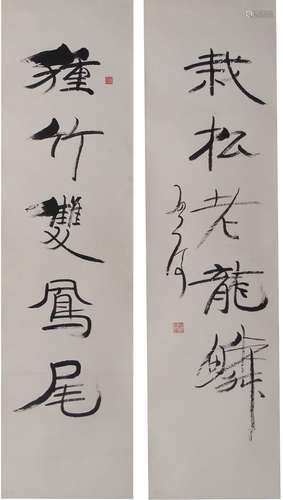 栽松老龍鱗
種竹雙鳳尾